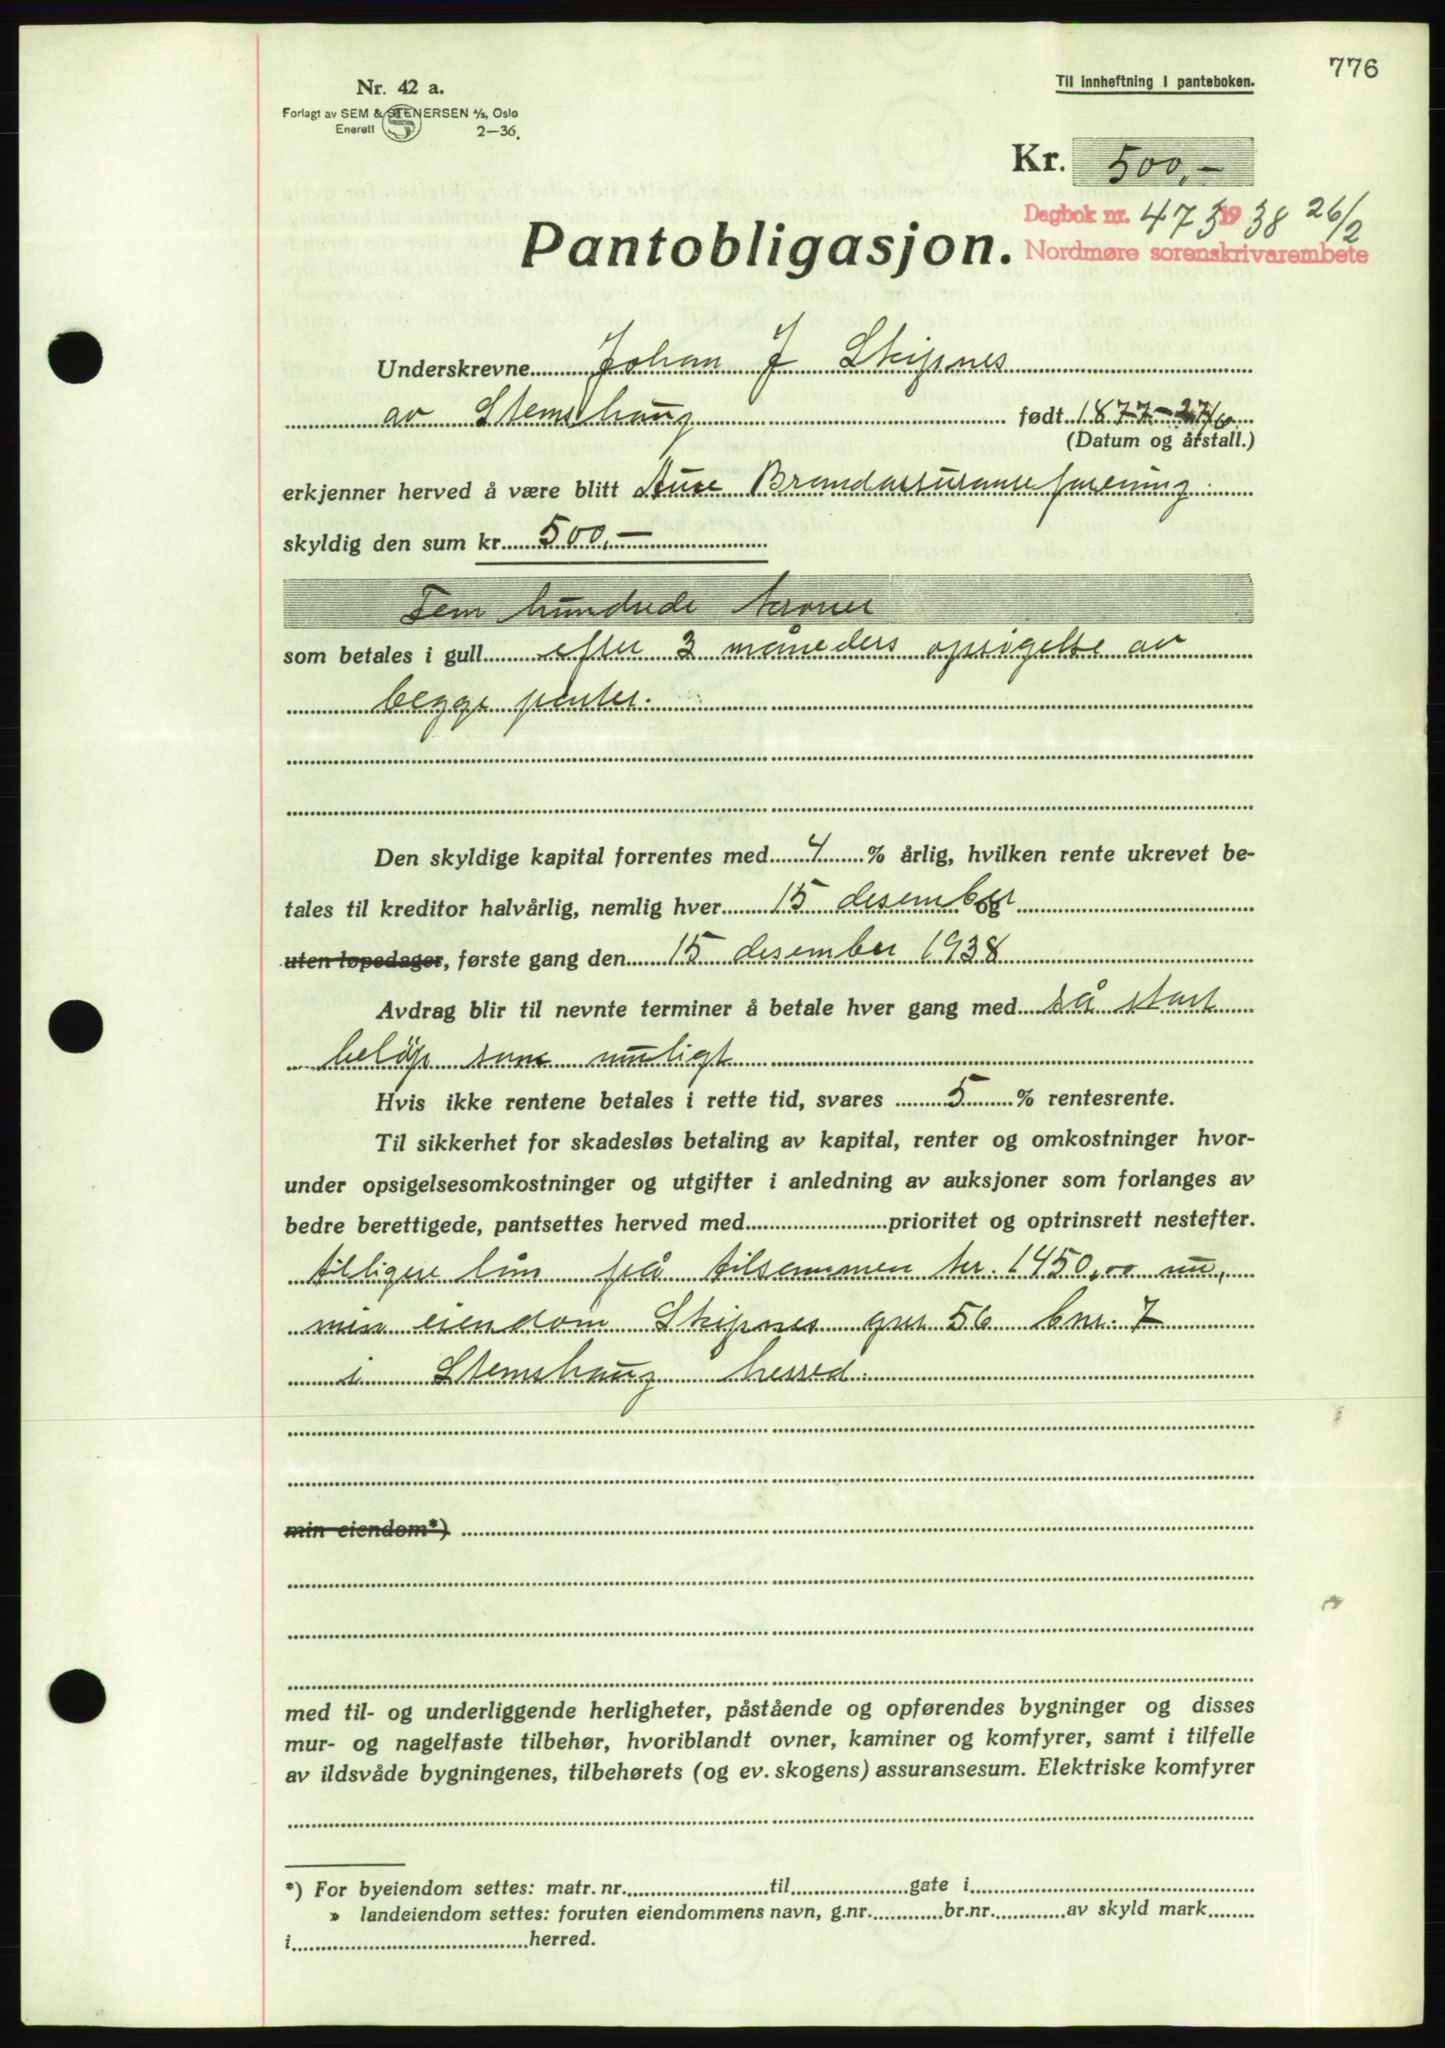 776
Nr. 42 a.
Til innheftning i panteboken.
Forlagt av SEM & STENERSEN A/S, Oslo
Enerett S 2—36.
Kr. 500,-
Dagbok nr. 473 1938 26/2
Nordmøre sorenskrivarembete
Pantobligasjon.
Underskrevne Johan J Skipnes
av Stemshaug født 1877-27/6
(Datum og årstall.)
erkjenner herved å være blitt Aure Brandassuranseforening
skyldig den sum kr. 500,-
Fem hundrede kroner
som betales i gull efter 3 måneders opsigelse av
begge parter.
Den skyldige kapital forrentes med 4 % årlig, hvilken rente ukrevet be-
tales til kreditor halvårlig, nemlig hver 15 desember og
uten løpedager, første gang den 15 desember 1938
Avdrag blir til nevnte terminer å betale hver gang med så stort
beløp som muligt
Hvis ikke rentene betales i rette tid, svares 5 % rentesrente.
Til sikkerhet for skadesløs betaling av kapital, renter og omkostninger hvor-
under opsigelsesomkostninger og utgifter i anledning av auksjoner som forlanges av
bedre berettigede, pantsettes herved med prioritet og optrinsrett nestefter.
tidligere lån på tilsammen kr. 1450,00
min eiendom Skipnes gnr 56 bnr. 7
i Stemshaug herred.
min eiendom*)
med til- og underliggende herligheter, påstående og opførendes bygninger og disses
mur- og nagelfaste tilbehør, hvoriblandt ovner, kaminer og komfyrer, samt i tilfelle
av ildsvåde bygningenes, tilbehørets (og ev. skogens) assuransesum. Elektriske komfyrer
*) For byeiendom settes: matr. nr. til gate i
» landeiendom settes: foruten eiendommens navn, g.nr. br.nr. av skyld mark
i herred.